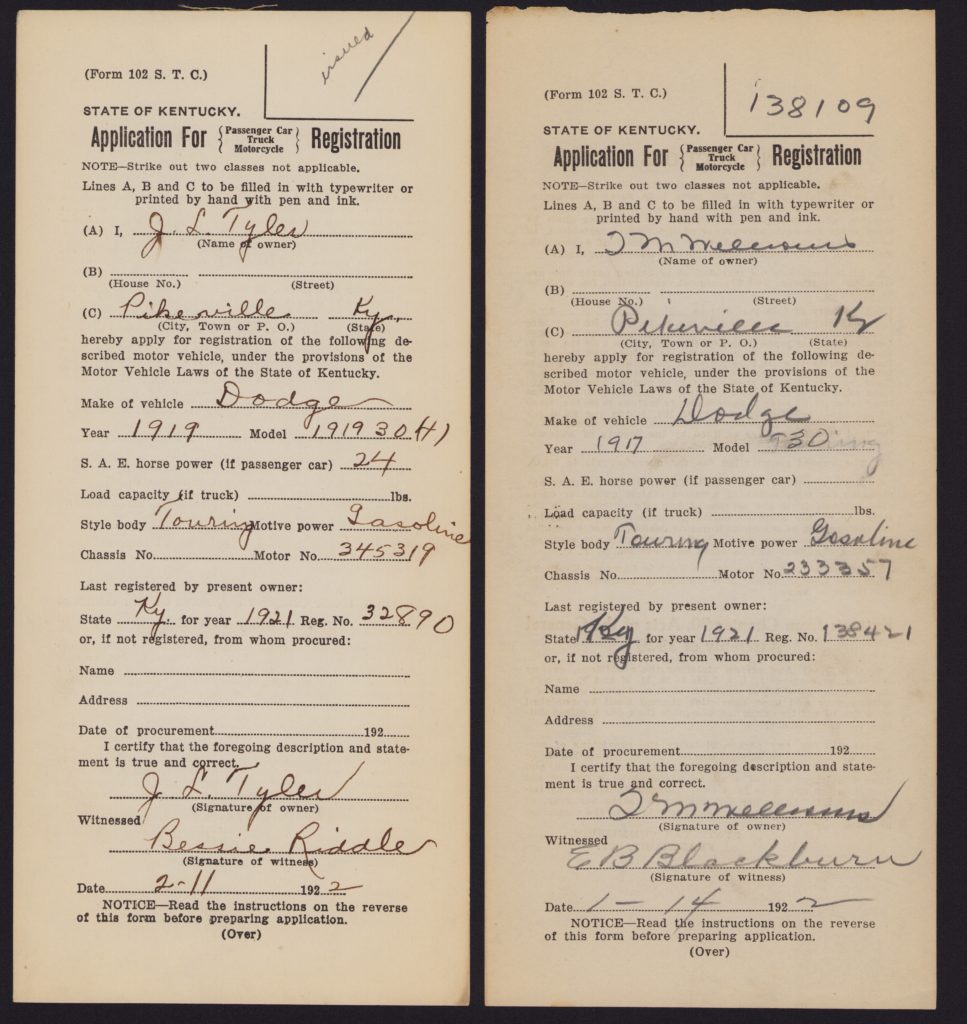 issued
(Form 102 S. T. C.)
STATE OF KENTUCKY.
Application For { Passenger Car Truck Motorcycle } Registration
NOTE—Strike out two classes not applicable.
Lines A, B and C to be filled in with typewriter or
printed by hand with pen and ink.
(A) I, J. L. Tyler
(Name of owner)
(B)
(House No.) (Street)
(C) Pikeville Ky.
(City, Town or P. O.) (State)
hereby apply for registration of the following de-
scribed motor vehicle, under the provisions of the
Motor Vehicle Laws of the State of Kentucky.
Make of vehicle Dodge
Year 1919 Model 1919 30
S. A. E. horse power (if passenger car) 24
Load capacity (if truck) lbs.
Style body Touring Motive power Gasoline
Chassis No. Motor No. 345319
Last registered by present owner:
State Ky. for year 1921 Reg. No. 32890
or, if not registered, from whom procured:
Name
Address
Date of procurement 192
I certify that the foregoing description and state-
ment is true and correct.
J. L. Tyler
(Signature of owner)
Witnessed
Bessie Riddle
(Signature of witness)
Date 2-11 1922
NOTICE—Read the instructions on the reverse
of this form before preparing application.
(Over)
138109
(Form 102 S. T. C.)
STATE OF KENTUCKY.
Application For { Passenger Car Truck Motorcycle } Registration
NOTE—Strike out two classes not applicable.
Lines A, B and C to be filled in with typewriter or
printed by hand with pen and ink.
(A) I,
(Name of owner)
(B)
(House No.) (Street)
(C) Pikeville Ky
(City, Town or P. O.) (State)
hereby apply for registration of the following de-
scribed motor vehicle, under the provisions of the
Motor Vehicle Laws of the State of Kentucky.
Make of vehicle Dodge
Year 1917 Model 30
S. A. E. horse power (if passenger car)
Load capacity (if truck) lbs.
Style body Touring Motive power Gasoline
Chassis No. Motor No. 233357
Last registered by present owner:
State Ky for year 1921 Reg. No. 138421
or, if not registered, from whom procured:
Name
Address
Date of procurement 192
I certify that the foregoing description and state-
ment is true and correct.
(Signature of owner)
Witnessed
E B Blackburn
(Signature of witness)
Date 1-14 1922
NOTICE—Read the instructions on the reverse
of this form before preparing application.
(Over)